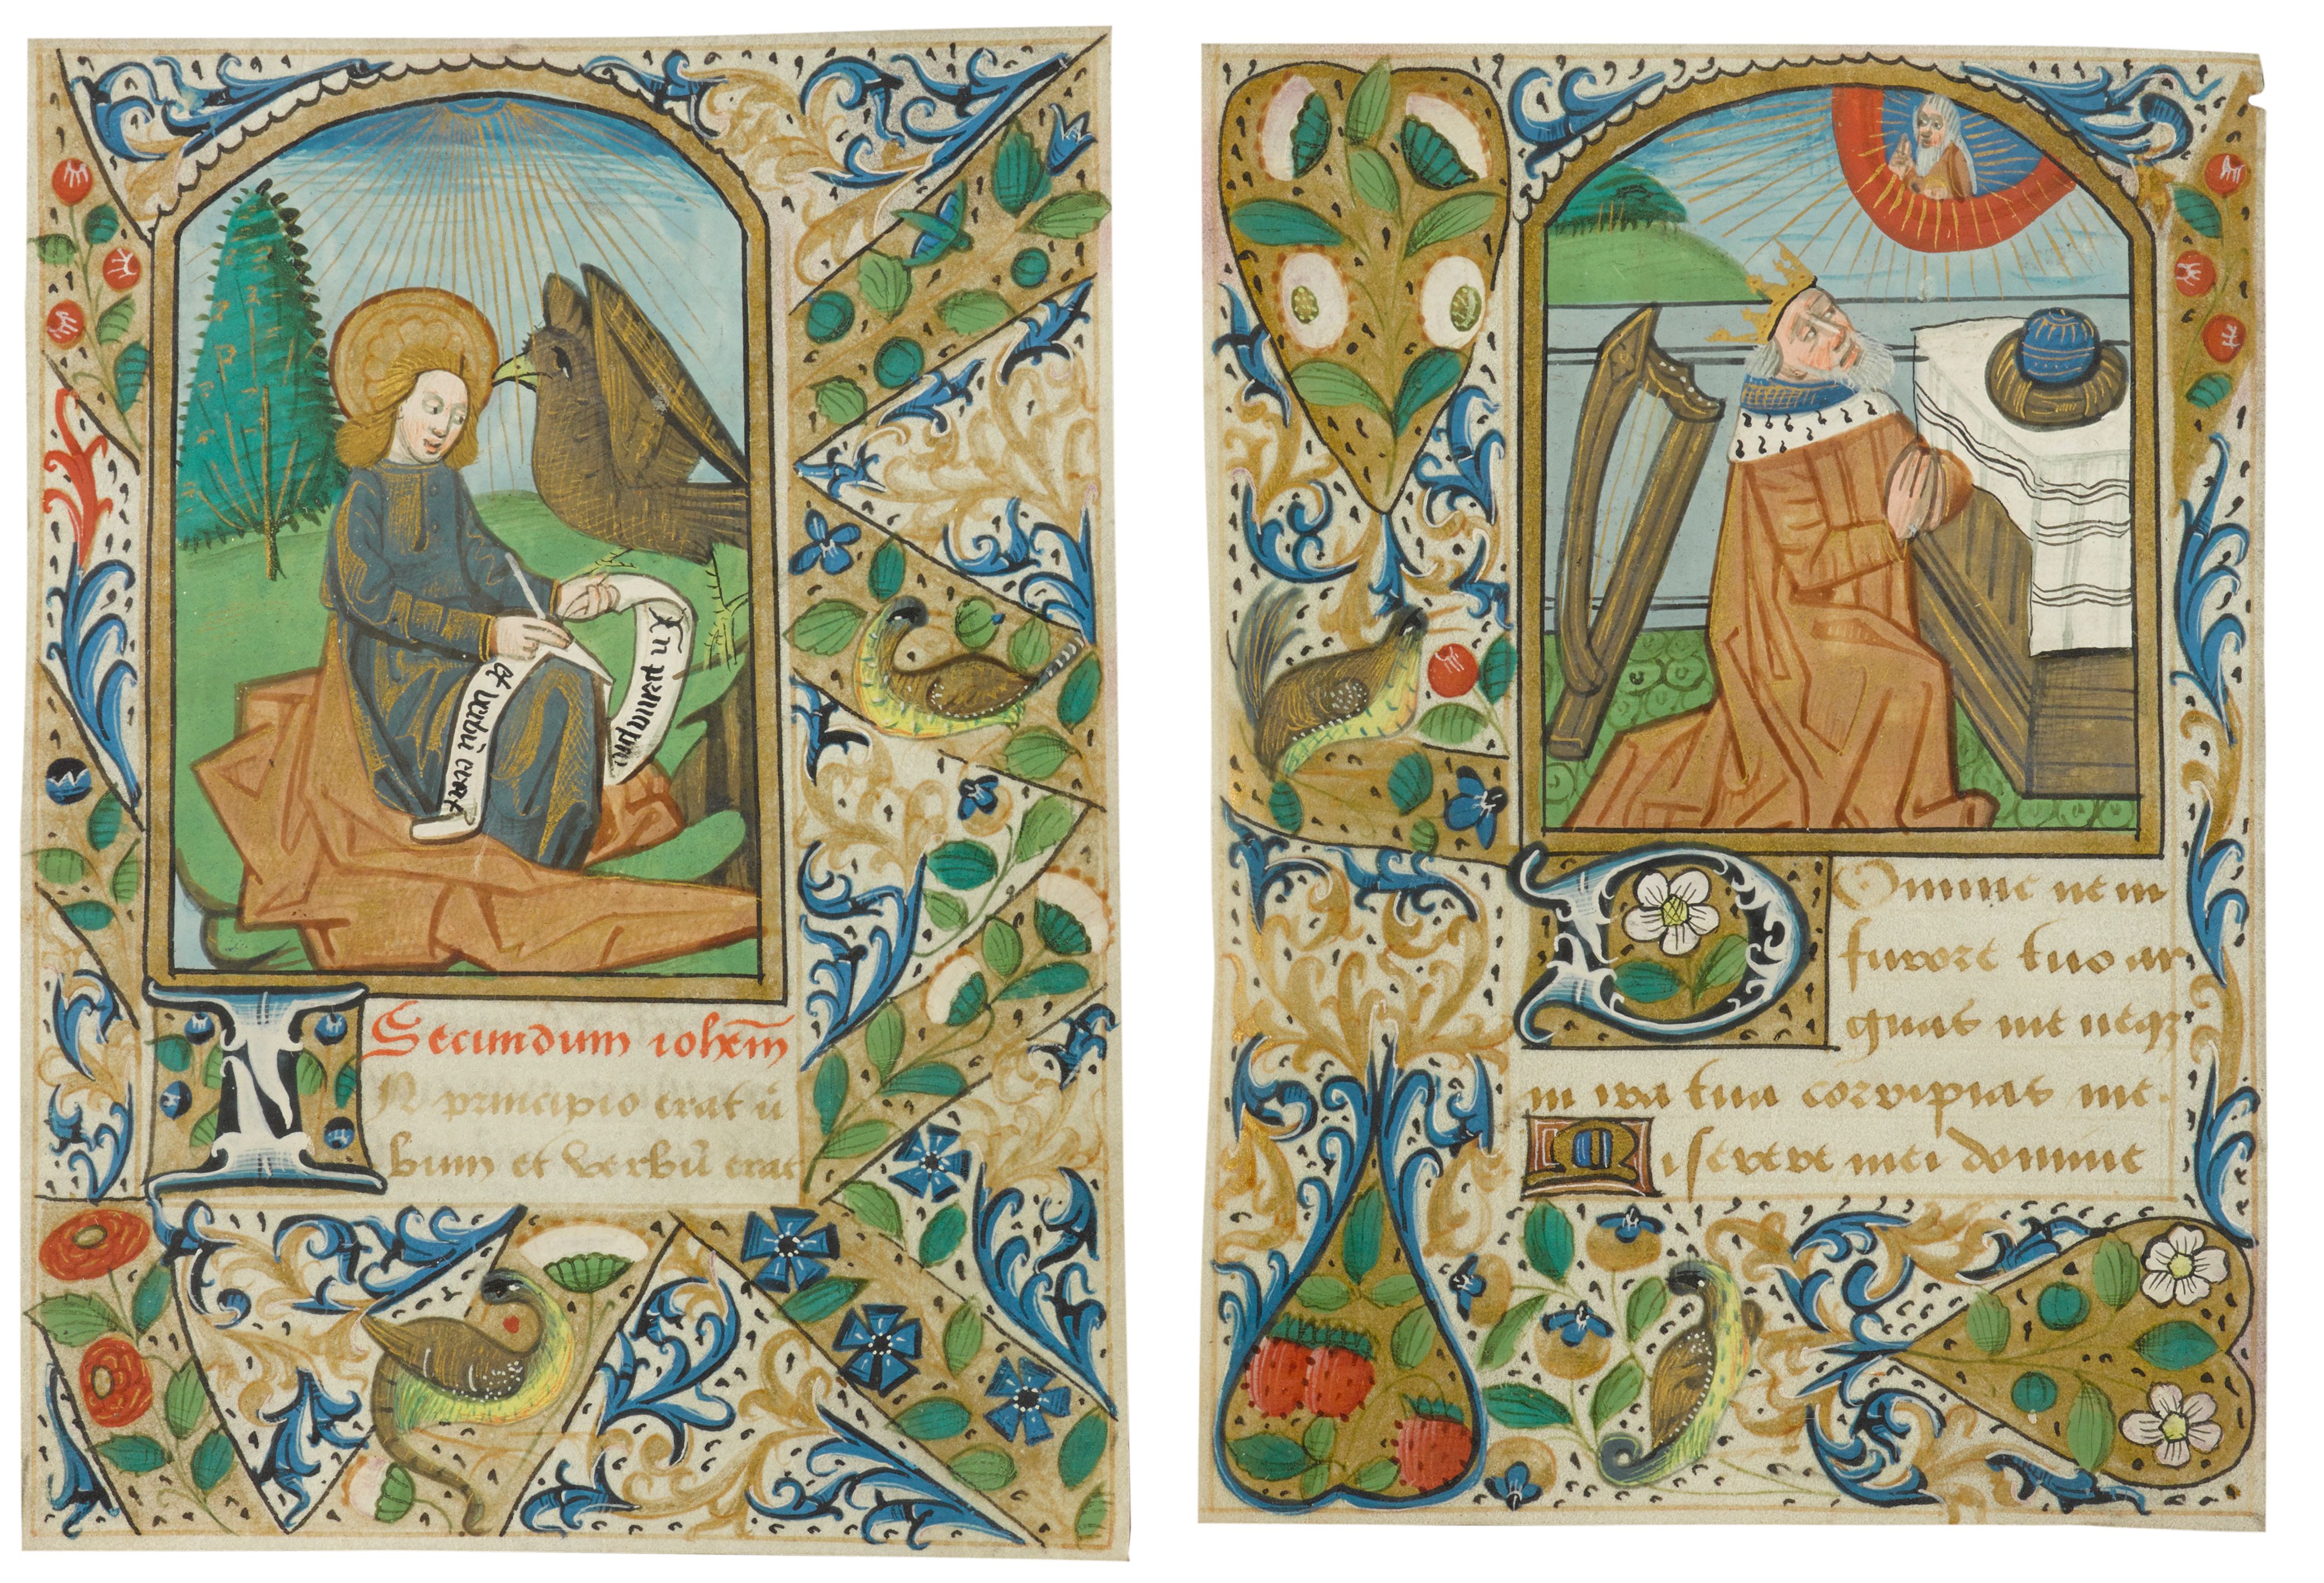 In principio
et verbũ erat
Secundum iohem̃
IN principio erat ũ
bum et verbũ erat
Domine ne in
furore tuo ar
guas me neqꝫ
in ira tua corripias me.
Miserere mei domine